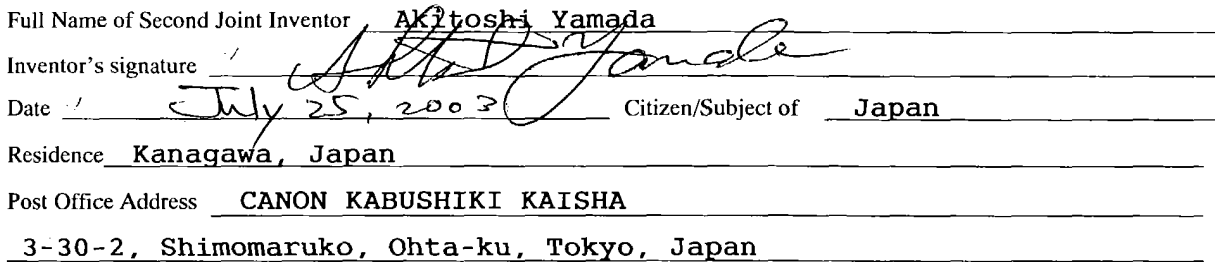 Full Name of Second Joint Inventor Akitoshi Yamada
Inventor's signature Akitoshi Yamada
Date July 25, 2003 Citizen/Subject of Japan
Residence Kanagawa, Japan
Post Office Address CANON KABUSHIKI KAISHA
3-30-2, Shimomaruko, Ohta-ku, Tokyo, Japan